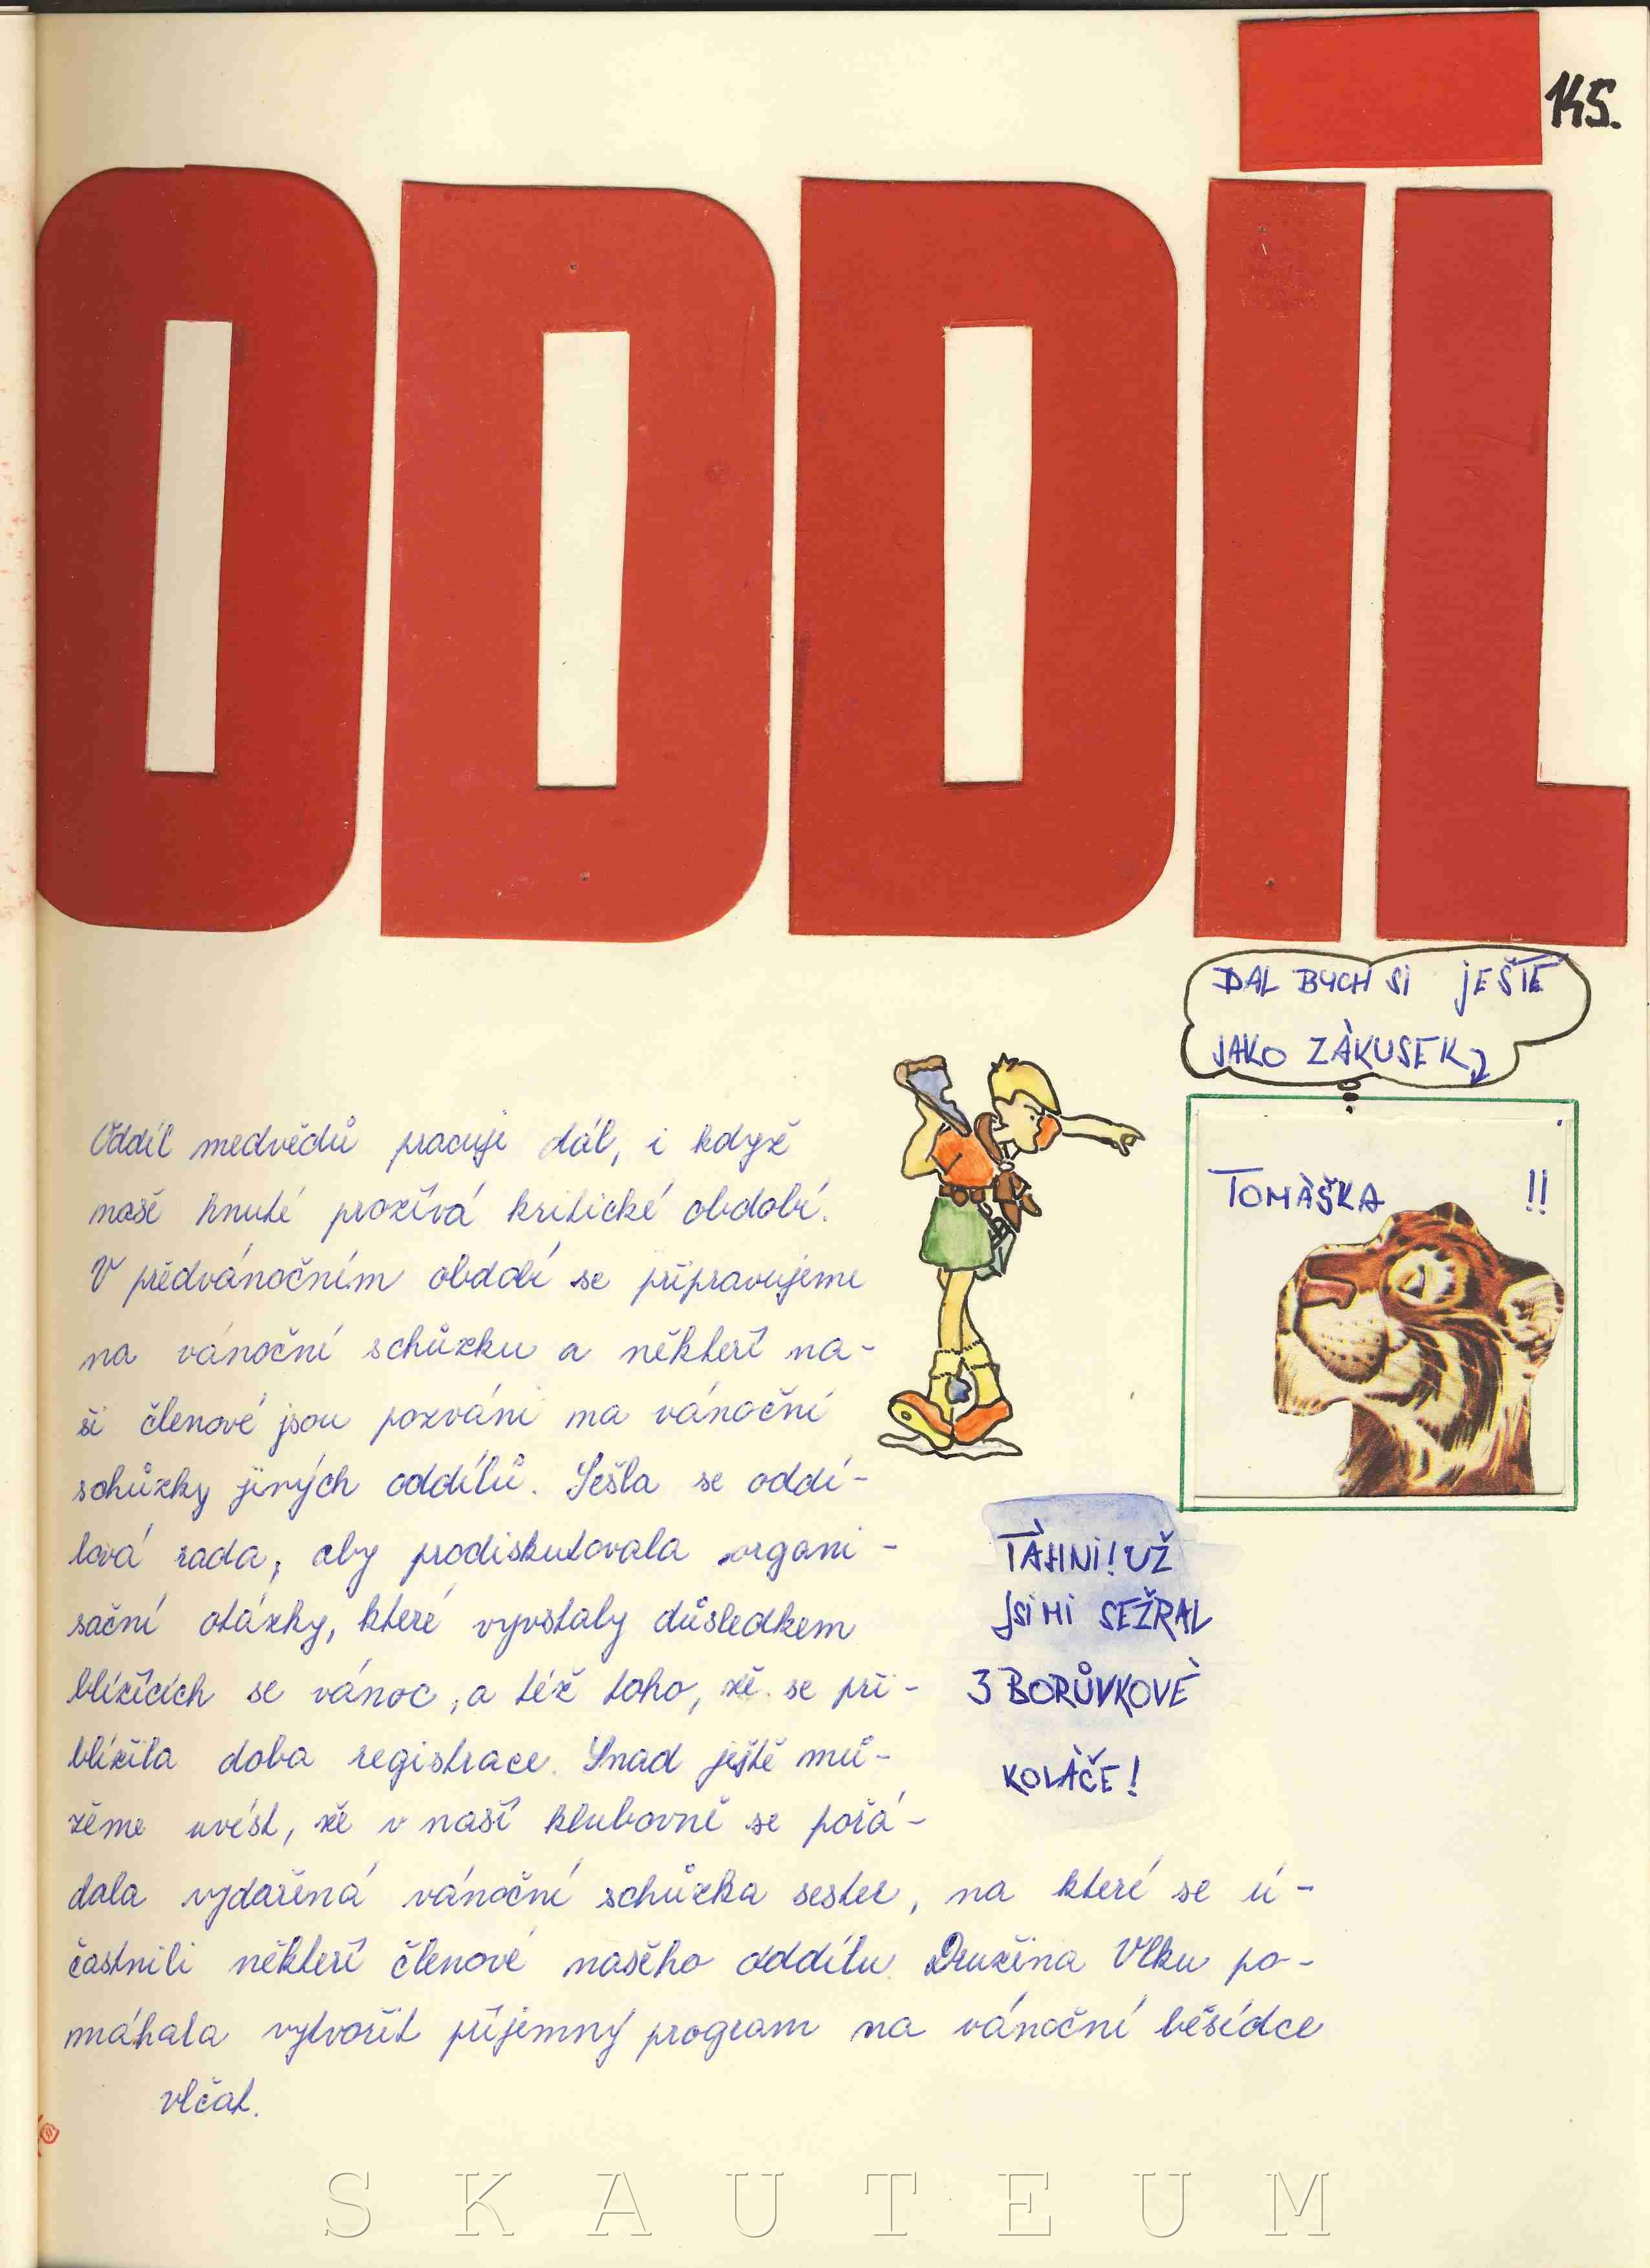 145.
ODDÍL
DAL BYCH SI JEŠTĚ
JAKO ZÁKUSEK
TOMÁŠKA !!
Oddíl medvědů pracuje dál, i když
naše hnutí prožívá kritické období.
V předvánočním období se připravujeme
na vánoční schůzku a někteří na-
ši členové jsou pozváni na vánoční
schůzky jiných oddílů. Sešla se oddí-
lová rada, aby prodiskutovala organi-
sační otázky, které vyvstaly důsledkem
blížících se vánoc, a též toho, že se při-
blížila doba registrace. Snad ještě mů-
žeme uvést, že v naší klubovně se pořá-
dala vydařená vánoční schůzka sester, na které se ú-
častnili někteří členové našeho oddílu. Družina Vlků po-
máhala vytvořit příjemný program na vánoční běsídce
vlčat.
TÁHNI! UŽ
JSI MI SEŽRAL
3 BORŮVKOVÉ
KOLÁČE!
SKAUTEUM